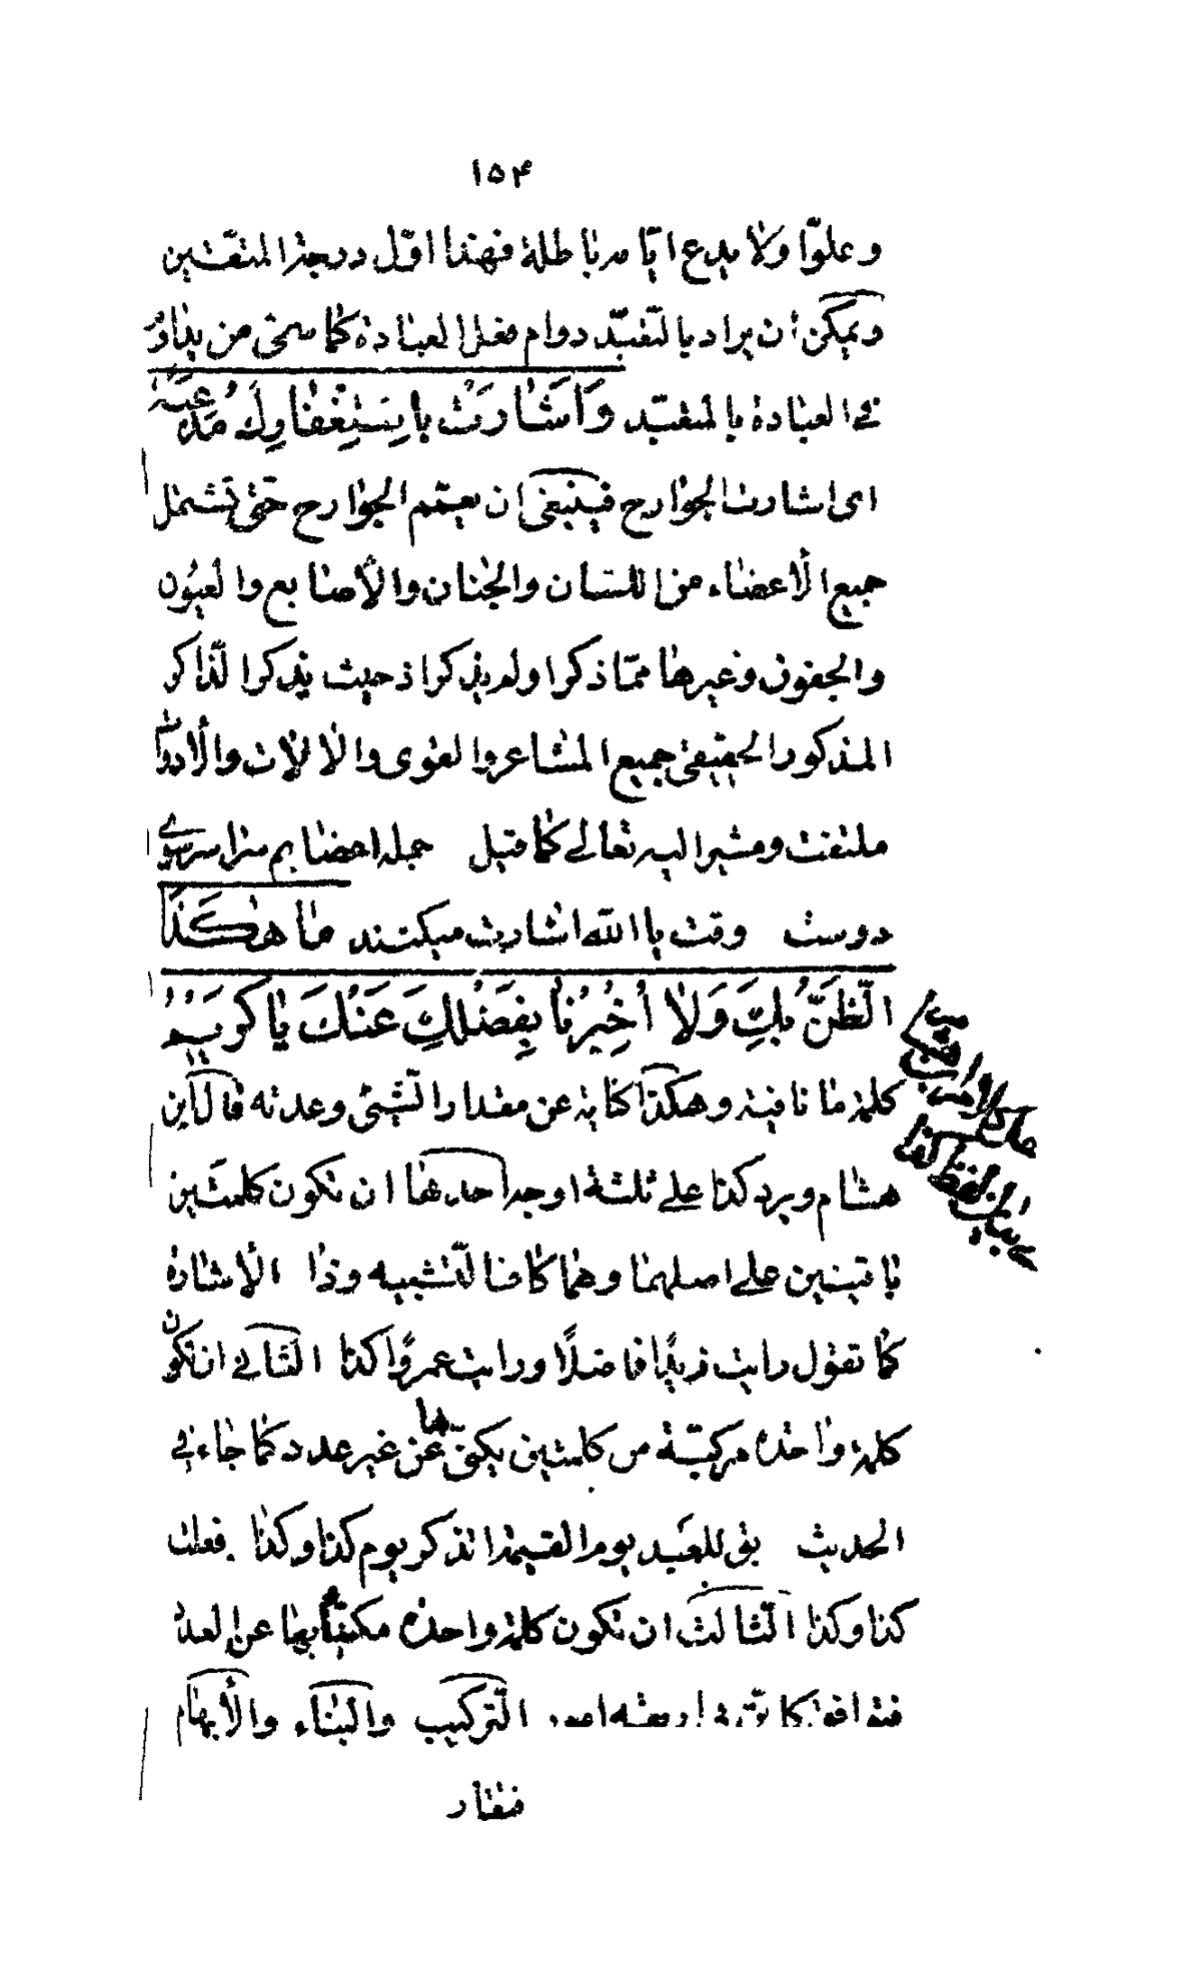 ١٥۴
وعلوّا ولا يدع ايّامه باطلة فهذا اوّل درجة المتقين
ويمكن أن يراد بالتعبّد دوام فعل العبادة كما سمى من يداوم
فى العبادة بالمتعبّد وَاَشٰارَتْ بِاسْتِغْفٰارِكَ مُذْعِنَةً
اى اشارت الجوارح فينبغى ان يعمّم الجوارح حتى تشمل
جميع الأعضاء من اللسان والجنان والأصابع والعيون
والجفون وغيرها ممّا ذكر اولم يذكر اذ حيث يذكر الذاكر
المذكور الحقيقى جميع المشاعر والقوى والالات والأدوات
ملتفت ومشير اليه تعالى كما قيل جمله اعضايم سراسر سوى
دوست وقت يا الله اشارت ميكنند مٰا هٰكَذَا
الظَّنُّ بِكَ وَلاٰ أُخْبِرْنٰا بِفَضْلِكَ عَنْكَ يٰا كَرِيمُ
كلمة ما نافية وهكذا كناية عن مقدار الشيئ وعدته قال ابن
هشام ويرد كذا على ثلثة اوجه احدها ان تكون كلمتين
باقيتين على اصلهما وهما كاف التشبيه وذا الأشارة
كما تقول رايت زيدًا فاضلًا ورايت عمرًوا كذا الثانى ان تكون
كلمة واحدة مركبّة من كلمتين يكنّى بها عن غير عدد كما جاء فى
الحديث يق للعبد يوم القيمة اتذكر يوم كذا وكذا فعلت
كذا وكذا الثالث ان تكون كلمة واحدة مكنيّا بها عن العدد
فتوافق كاىّ فى اربعة امور التركيب والبناء والأبهام